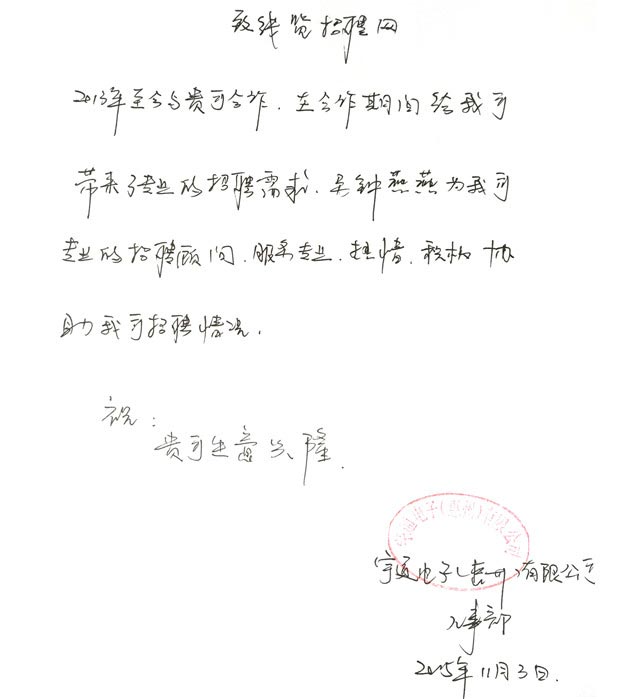 致纬览招聘网
2013年至今与贵司合作,在合作期间给我司
带来了专业的招聘需求,吴钟燕燕为我司
专业的招聘顾问,服务专业、热情、积极协
助我司招聘情况。
祝:
贵司生意兴隆.
宇通电子(惠州)有限公司
宇通电子(惠州)有限公司
人事部
2015年11月3日.